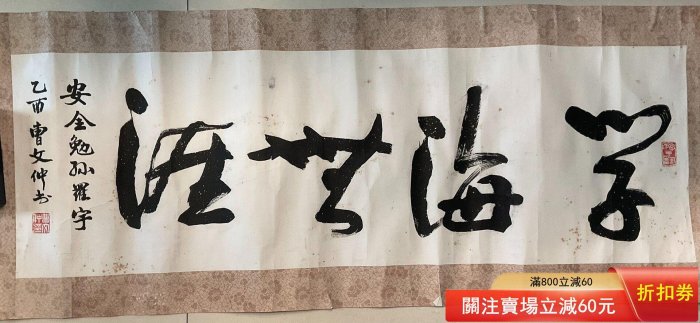 学海無涯
安全勉孙羅宇
乙酉曹文仲书
滿800立減60
關注賣場立減60元
折扣券